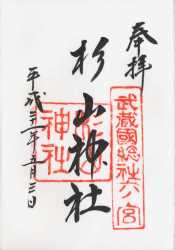 奉拝
武蔵國総社六ノ宮
杉山神社
神社
平成三十一年五月三日